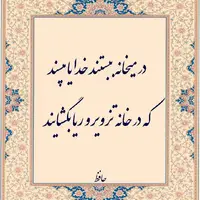 در میخانه ببستند خدایا مپسند
که در خانه تزویر و ریا بگشایند
حافظ